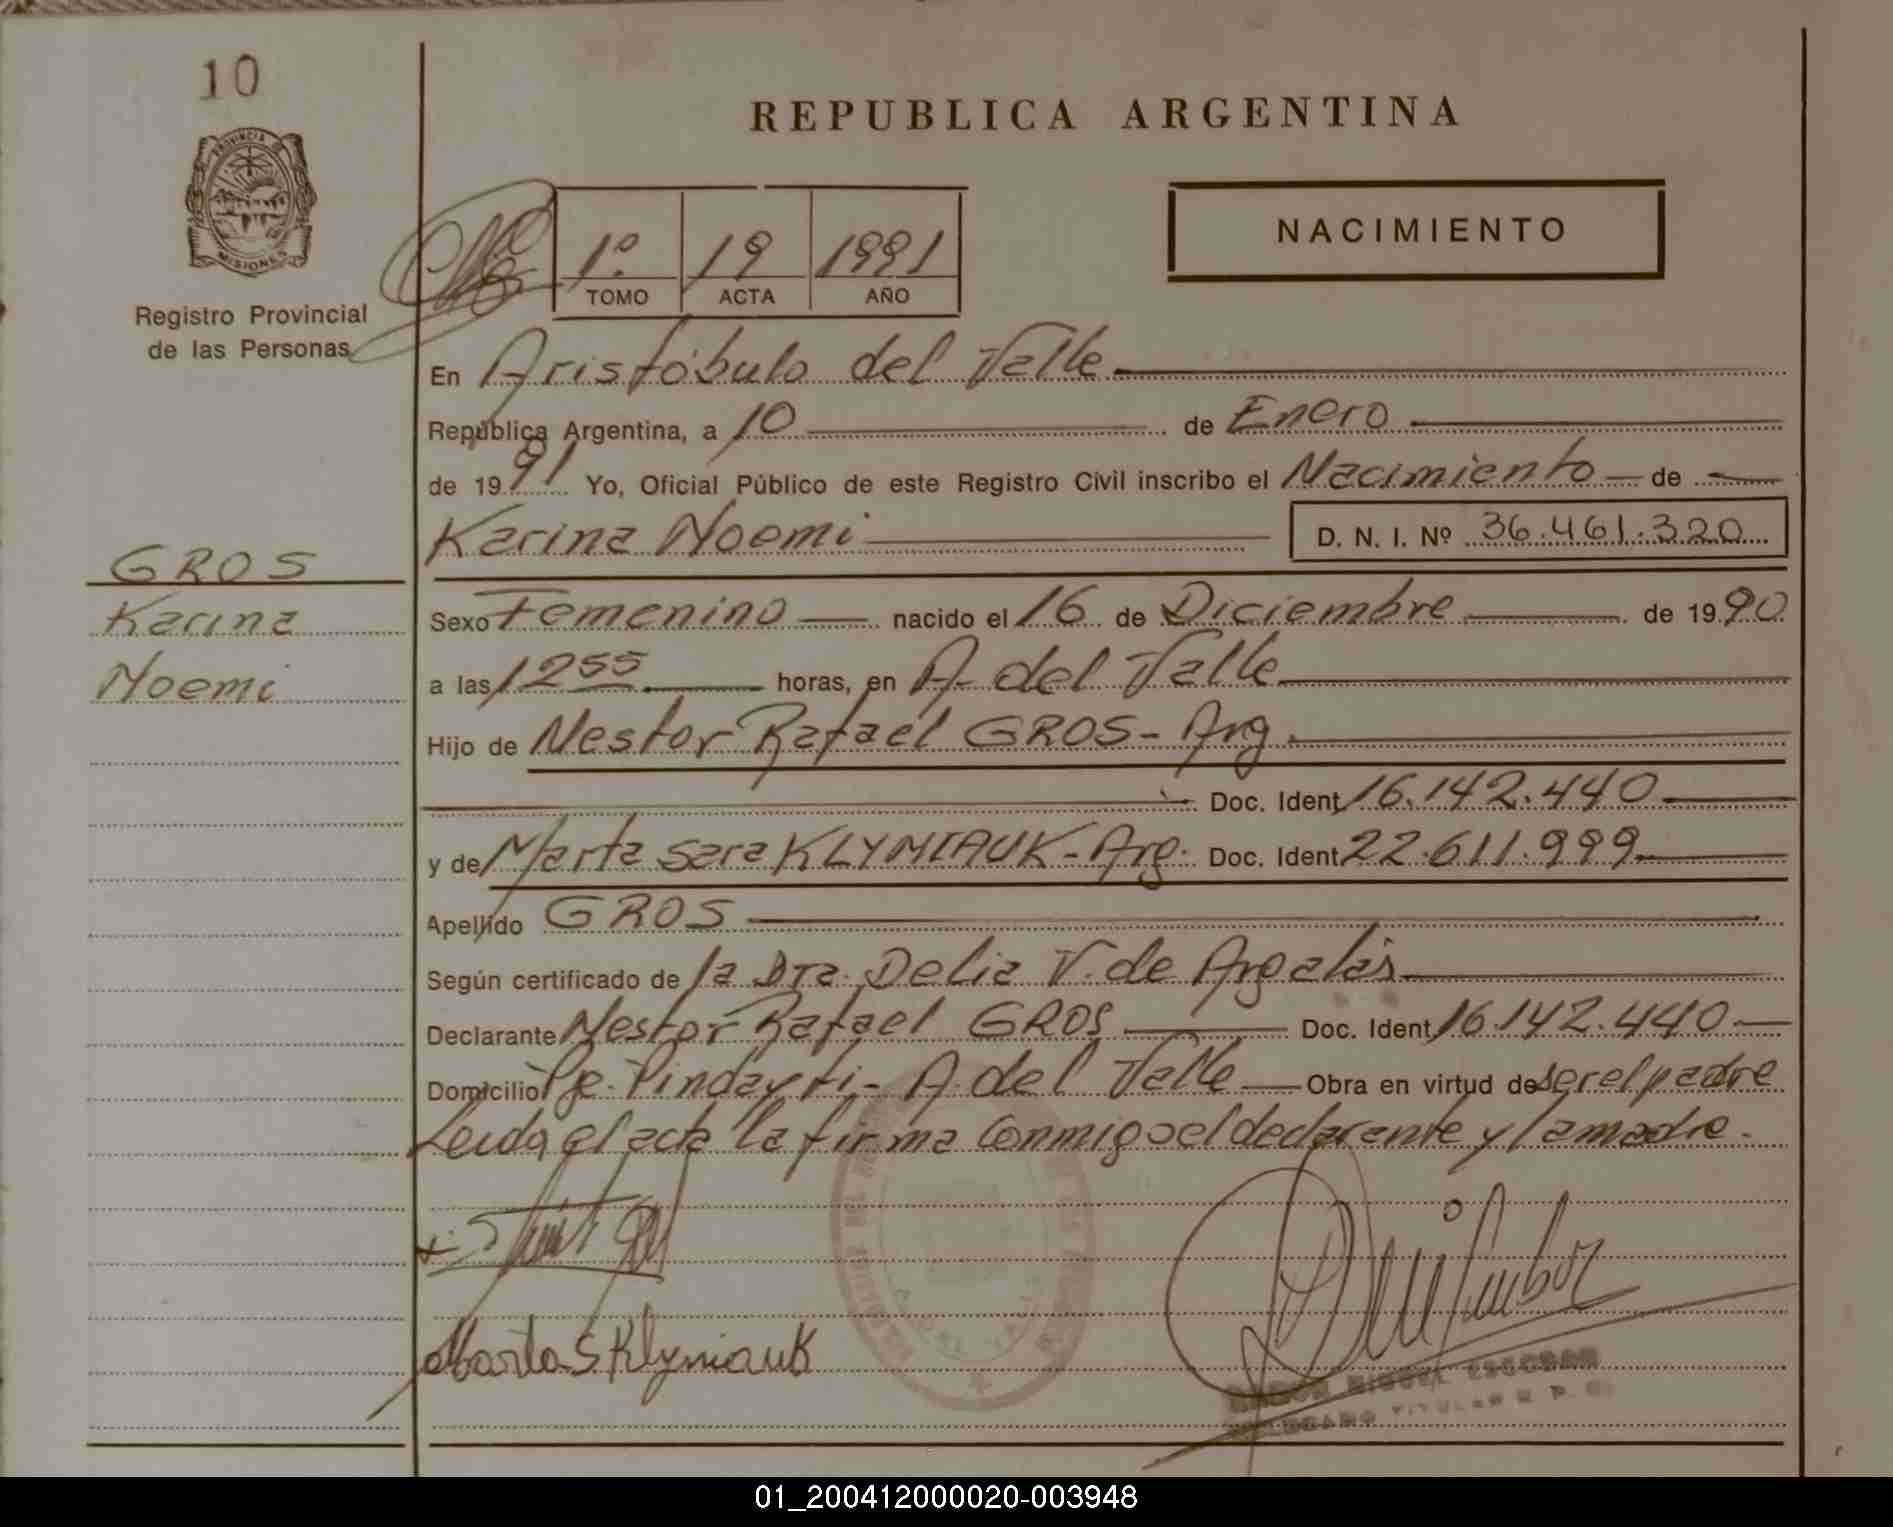 10
PROVINCIA DE
MISIONES
Registro Provincial
de las Personas
GROS
Karina
Noemi
REPUBLICA ARGENTINA
1º 19 1991
TOMO ACTA AÑO
NACIMIENTO
En Aristóbulo del Valle
República Argentina, a 10 de Enero
de 1991 Yo, Oficial Público de este Registro Civil inscribo el Nacimiento de
Karina Noemi D. N. I. Nº 36.461.320
Sexo Femenino nacido el 16 de Diciembre de 1990
a las 12 55 horas, en A. del Valle
Hijo de Nestor Rafael GROS - Arg.
Doc. Ident. 16.142.440
y de Marta Sara KLYMIAUK - Arg. Doc. Ident. 22.611.999
Apellido GROS
Según certificado de la Dra. Delia V. de Argalás
Declarante Nestor Rafael GROS Doc. Ident. 16.142.440
Domicilio Pje. Pindayti - A. del Valle Obra en virtud de ser el padre
Leida el acta la firma conmigo el declarante y la madre.
Marta S Klymiauk
RAMON MIGUEL ESCOBAR
DELEGADO TITULAR R. P. P.
01_200412000020-003948